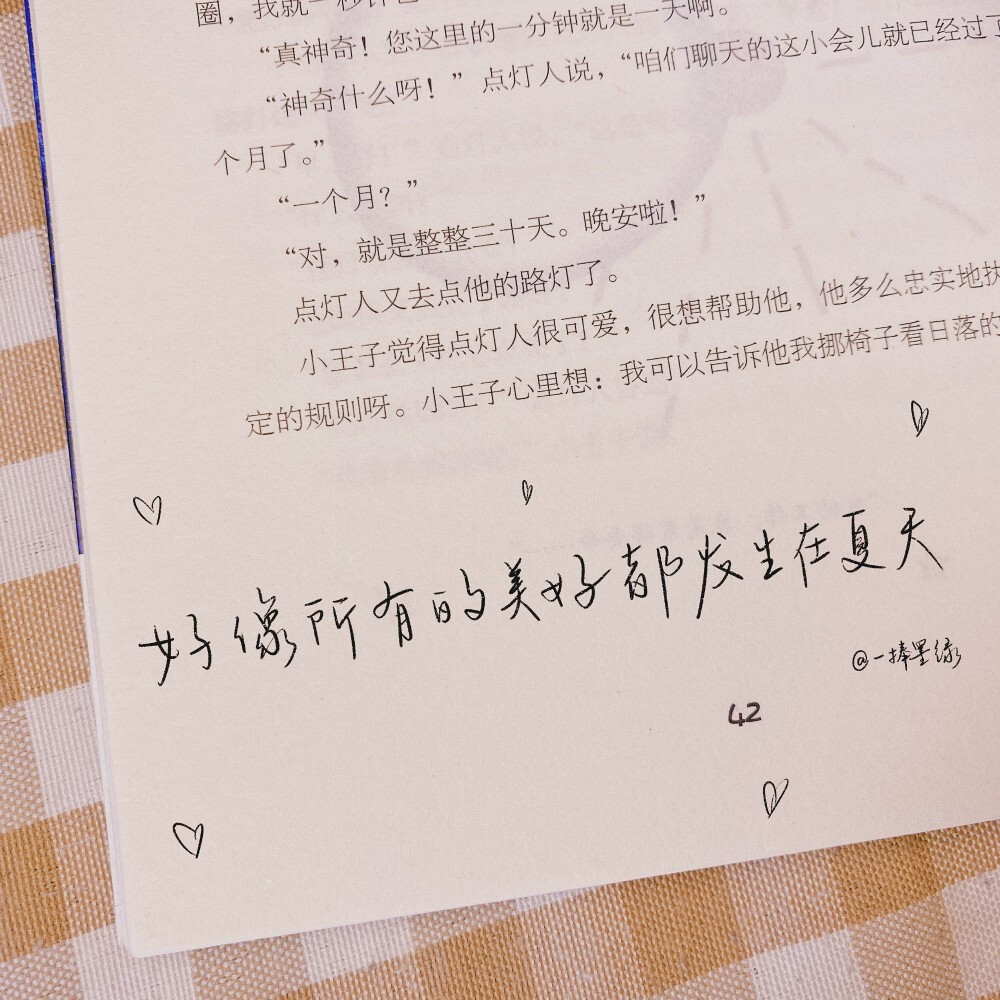 圈，我就一秒钟也
“真神奇！您这里的一分钟就是一天啊。
“神奇什么呀！”点灯人说，“咱们聊天的这小会儿就已经过了
个月了。”
“一个月？”
“对，就是整整三十天。晚安啦！”
点灯人又去点他的路灯了。
小王子觉得点灯人很可爱，很想帮助他，他多么忠实地执
定的规则呀。小王子心里想：我可以告诉他我挪椅子看日落的
好像所有的美好都发生在夏天
@一捧星缘
42